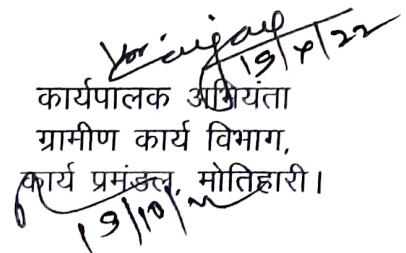 19/4/22
कार्यपालक अभियंता
ग्रामीण कार्य विभाग,
कार्य प्रमंडल, मोतिहारी।